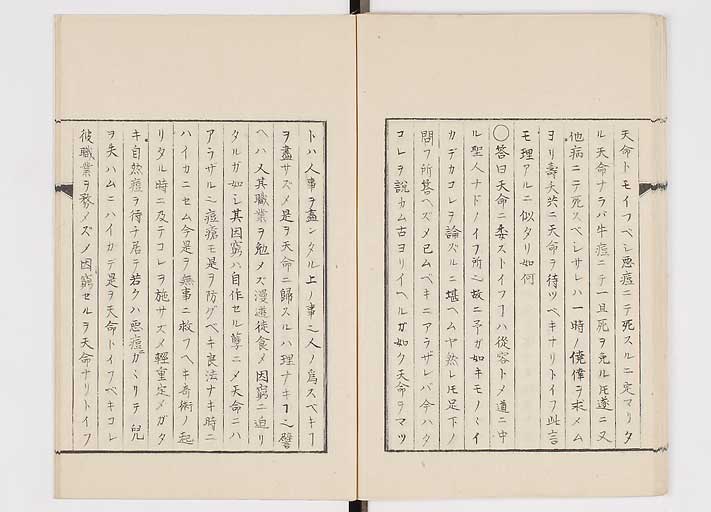 天命トモイフベシ悪痘ニテ死スルニ定マリタ
ル天命ナラバ牛痘ニテ一旦死ヲ免ル𪜈遂ニ又
他病ニテ死スベシサレハ一時ノ僥倖ヲ求メム
ヨリ壽夭共ニ天命ヲ待ツベキナリトイフ此言
モ理アルニ似タリ如何
○答曰天命ニ委ストイフヿハ從容トメ道ニ中
ル聖人ナドノイフ所之故ニ予ガ如キモノヽイ
カデカコレヲ論ズルニ堪ヘムヤ然レ𪜈足下ノ
問フ所答ヘズメ已ムベキニアラザレバ今ハタ
コレヲ説カム古ヨリイヘルガ如ク天命ヲマツ
トハ人事ヲ盡シタル上ノ事之人ノ爲スベキヿ
ヲ盡サズメ是ヲ天命ニ歸スルハ理ナキヿ之譬
ヘハ人其職業ヲ勉メズ漫遊徒食メ困窮ニ迫リ
タルガ如シ其困窮ハ自作セル孽ニメ天命ニハ
アラザル之痘瘡モ是ヲ防グベキ良法ナキ時ニ
ハイカニセム今是ヲ無事ニ救フヘキ奇術ノ起
リタル時ニ及テコレヲ施サズメ輕重定メガタ
キ自然痘ヲ待チ居テ若クハ悪痘ガヽリテ兒
ヲ失ハムニハイカデ是ヲ天命トイフベキコレ
彼職業ヲ務メズメ困窮セルヲ天命ナリトイフ